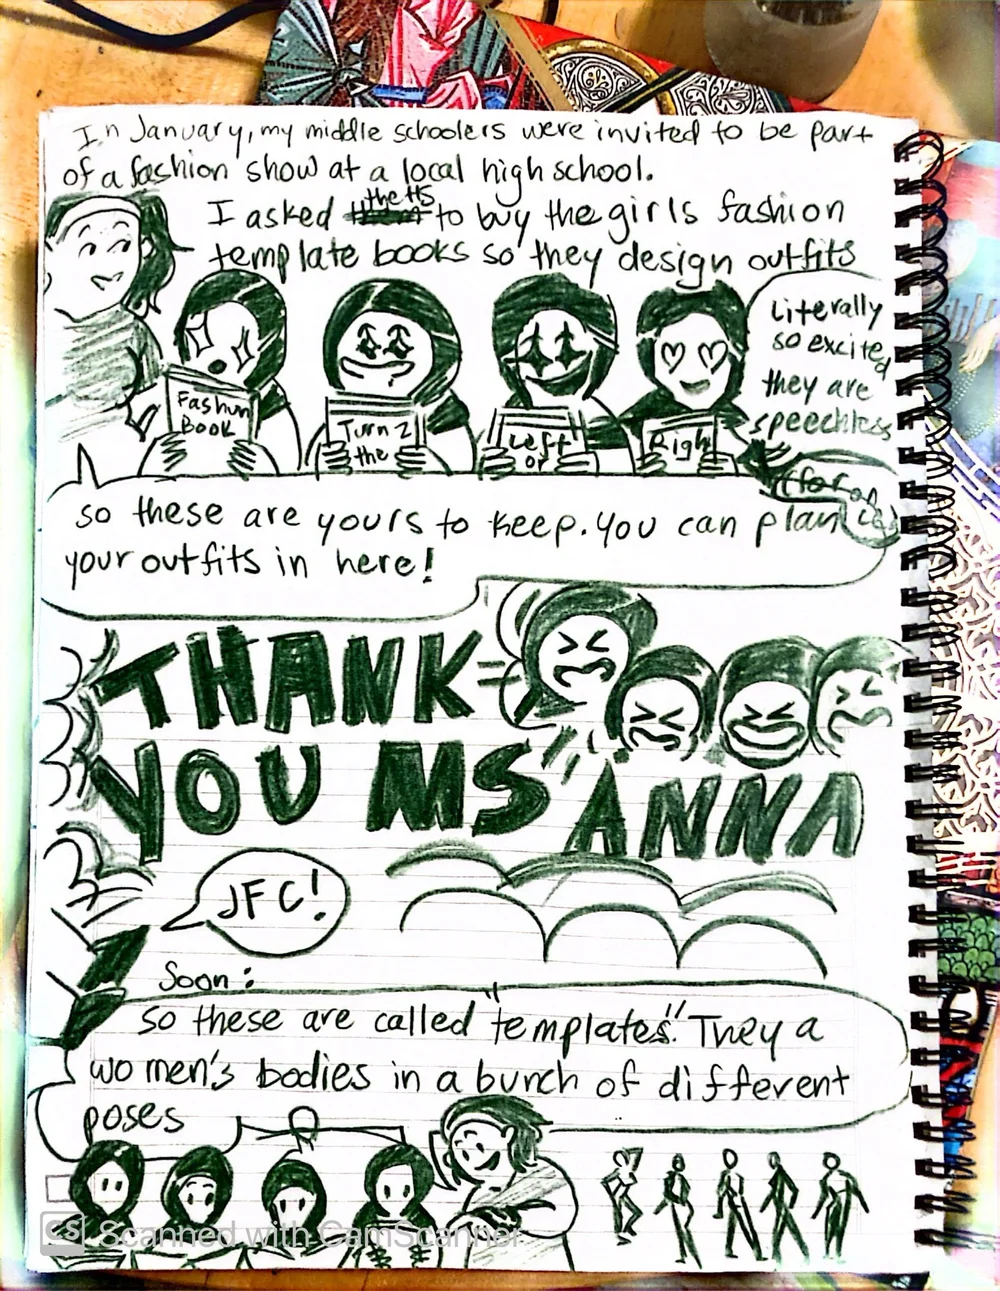 In January, my middle schoolers were invited to be part
of a fashion show at a local high school.
I asked the HS to buy the girls fashion
template books so they design outfits
Literally
so excited
they are
speechless
(for once)
Fashion
Book
Turn 2
the
Left
or
Right
so these are yours to keep. You can plan
your outfits in here!
THANK
YOU MS
ANNA
JFC!
Soon:
so these are called "templates". They a
women's bodies in a bunch of different
poses
CS Scanned with CamScanner